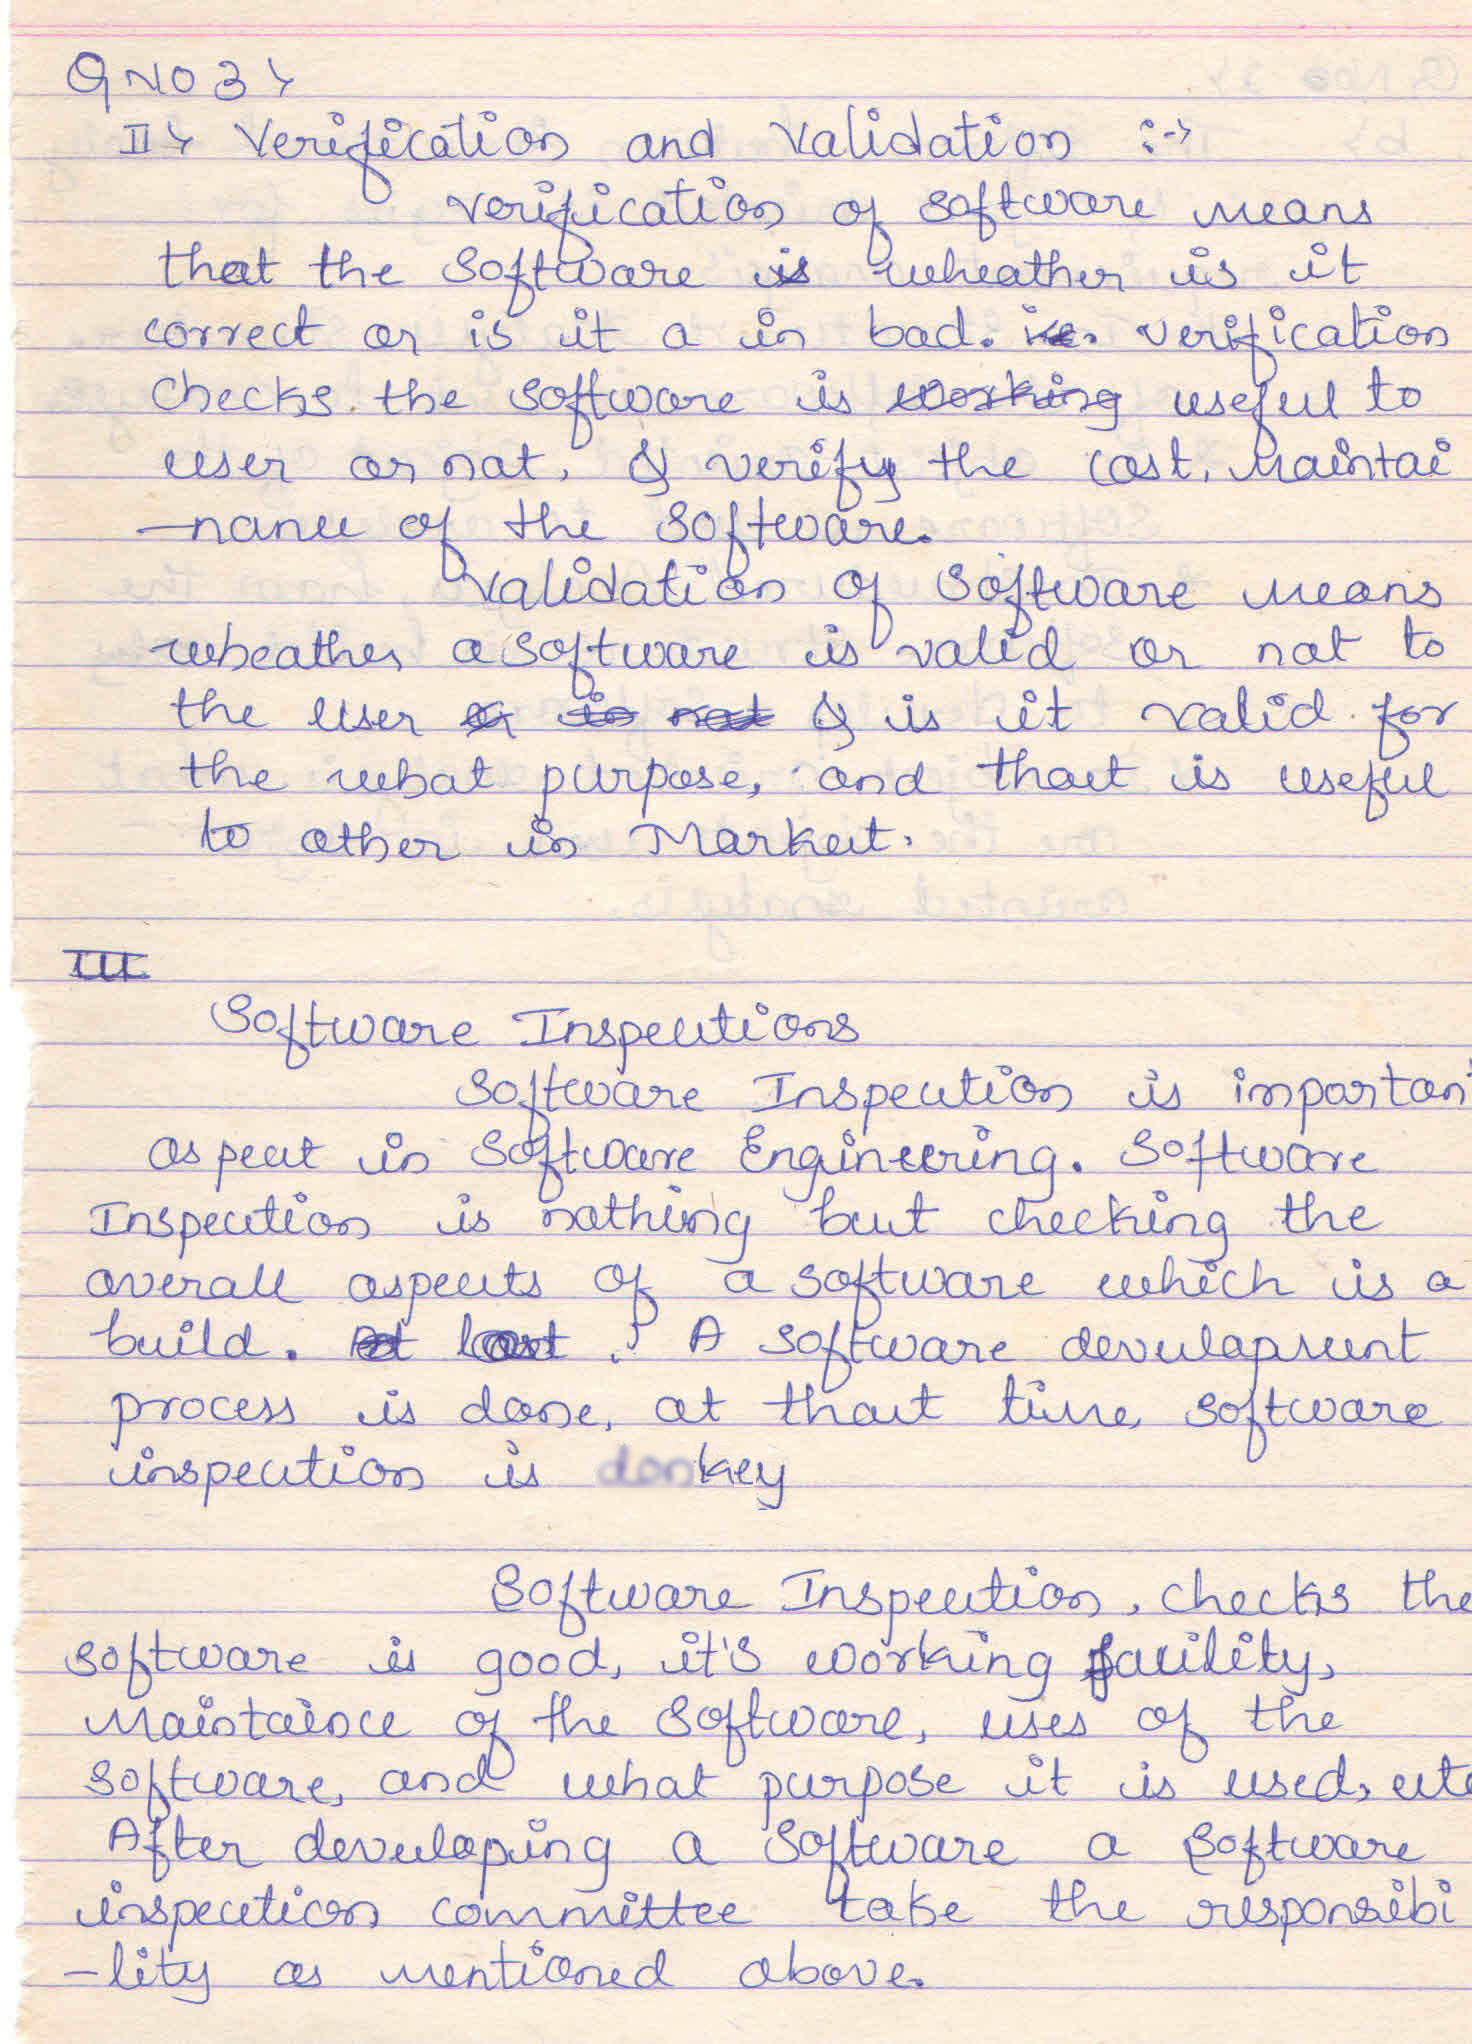 QNO 3>
II> Verification and Validation :->
Verification of software means
that the software is wheather is it
correct or is it a in bad. i.e. verification
checks the software is working useful to
user or not, & verify the cost, Maintai
-nance of the software.
Validation of software means
wheather a software is valid or not to
the user or is not & is it valid for
the what purpose, and that is useful
to other in Market.
III.
Software Inspections
Software Inspection is importan
aspect in Software Engineering. Software
Inspection is nothing but checking the
overall aspects of a software which is a
build. At last . A software development
process is done, at that time, software
inspection is donkey
Software Inspection, checks the
software is good, it's working facility,
Maintaince of the software, uses of the
software, and what purpose it is used, etc
After developing a software a software
inspection committee take the responsibi
-lity as mentioned above.